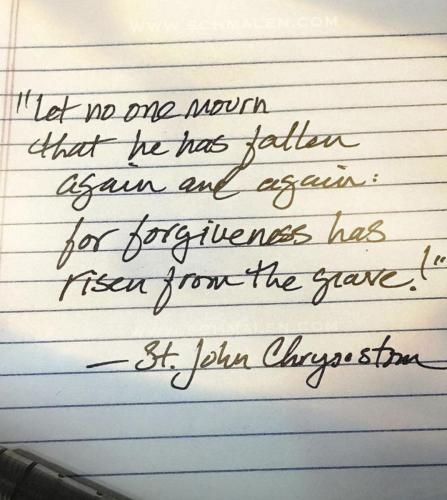 WWW.SCHMALEN.COM
"Let no one mourn
that he has fallen
again and again:
for forgiveness has
risen from the grave!"
— St. John Chrysostom
WWW.SCHMALEN.COM